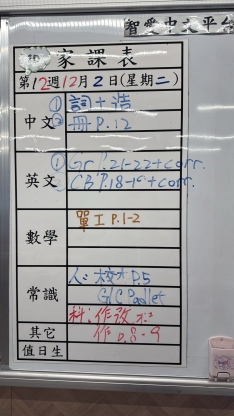 智愛中文平台
家課表
第12週12月2日(星期二)
中文
① 詞+造
② 冊P.12
英文
① Gr P.21-22+corr.
② CB P.18-19+corr.
數學
單工P.1-2
常識
人:校本P.5
G/C Pamlet
科:作改
作p.8-9
其它
值日生